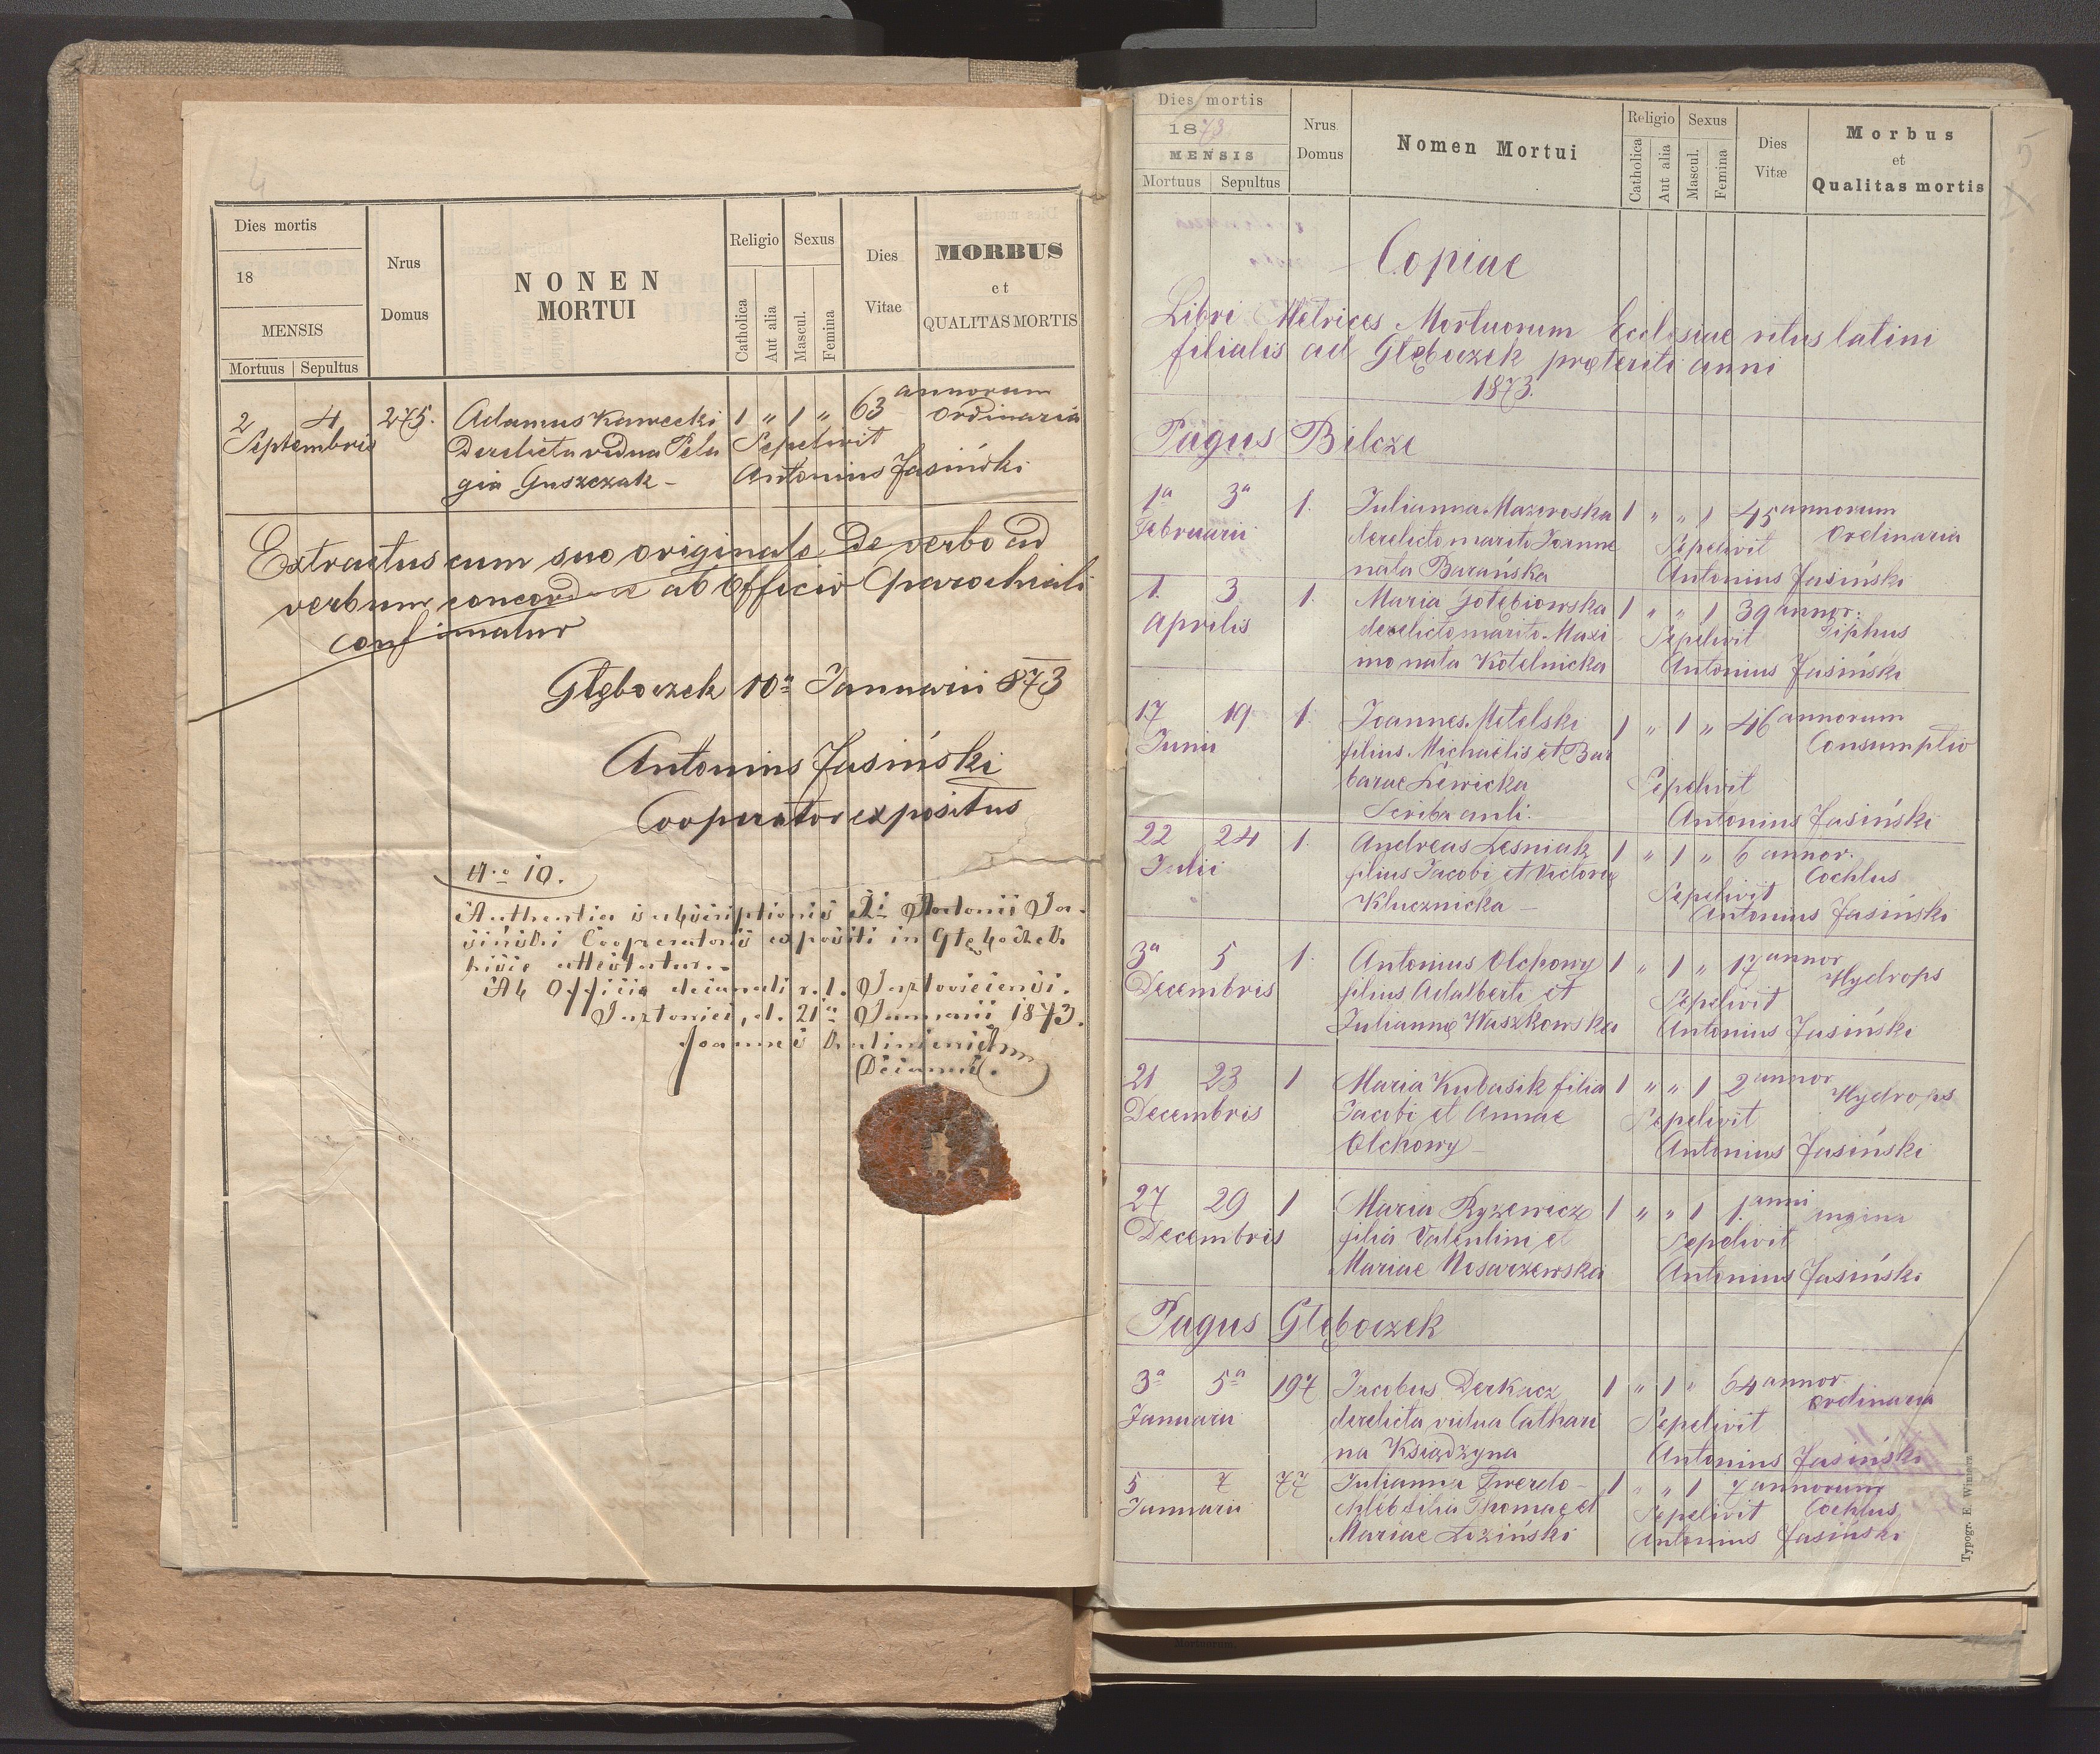 4
Dies mortis
18
MENSIS
Mortuus Sepultus
Nrus
Domus
NONEN
MORTUI
Religio
Catholica
Aut alia
Sexus
Mascul.
Femina
Dies
Vitae
MORBUS
et
QUALITAS MORTIS
2 4 275. Adamus Kawecki 1 " 1 " 63 annorum ordinaria
Septembris Derelicta vidua Pela Sepelivit
gia Guszczak - Antonius Jasiński
Extractus cum suo originale de verbo ad
verbum concordare ab Officio parochiali
confirmatur
Głęboczek 10a Januarii 873
Antonius Jasiński
Cooperator expositus
No 10.
Authentia subscriptionis Antonii Ja-
siński Cooperatoris expositi in Głęboczek
hisce attestatur.-
Ab Officio decanali r. l. Jazloviciensi.
Jazlovici, d. 21a Januarii 1873.
Joannes
Decanus.
Dies mortis
1873
MENSIS
Mortuus Sepultus
Nrus
Domus
Nomen Mortui
Religio
Catholica
Aut alia
Sexus
Mascul.
Femina
Dies
Vitæ
Morbus
et
Qualitas mortis
5
Copiae
Libri Metrices Mortuorum Ecclesiae ritus latini
filialis ad Głęboczek præteriti anni
1873.
Pagus Bilcze
1a 3a 1. Julianna Mazowska 1 " " 1 45 annorum
Februarii derelicto marito Joanne Sepelivit ordinaria
nata Barańska Antonius Jasiński
1. 3 1. Maria Gołębiowska 1 " " 1 39 annor.
Aprilis derelicto marito Maxi Sepelivit Tiphus
mo nata Kotelnicka Antonius Jasiński
17 19 1. Joannes Metelski 1 " 1 " 46 annorum
Junii filius Michaelis et Bar Consumptio
barae Lewicka Sepelivit
Scriba auli. Antonius Jasiński
22 24 1. Andreas Lesniak 1 " 1 " 6 annor.
Julii filius Jacobi et Victoriæ Cochlus
Klucznicka - Sepelivit
Antonius Jasiński
3a 5 1. Antonius Olchowy 1 " 1 " 17 annor
Decembris filius Adalberti et Sepelivit Hydrops
Juliannæ Waszkowska Antonius Jasiński
21 23 1 Maria Kubasik filia 1 " " 1 2 annor
Decembris Jacobi et Annae Sepelivit Hydrops
Olchowy - Antonius Jasiński
27 29 1 Maria Ryzewicz 1 " " 1 1. anni angina
Decembris filia Valentini et Sepelivit
Mariae Nosarzewska Antonius Jasiński
Pagus Głęboczek
3a 5a 197 Jacobus Derkacz 1 " 1 " 64 annor.
Januarii derelicta vidua Cathari Sepelivit ordinaria
na Ksiądzyna Antonius Jasiński
5 7 77 Julianna Twerdo- 1 " " 1 7 annorum
Januarii chleb filia Thomae et Sepelivit Cochlus
Mariae Łoziński Antonius Jasiński
Typogr. E. Winiarz
Mortuorum.